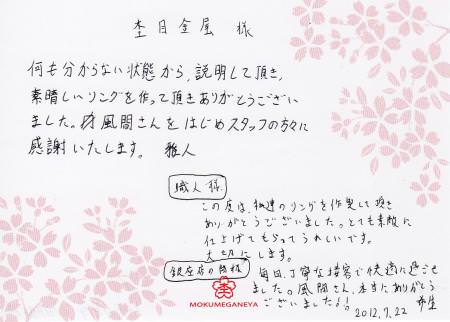 杢目金屋 様
何も分からない状態から、説明して頂き、
素晴しいリングを作って頂きありがとうござい
ました。風間さんをはじめスタッフの方々に
感謝いたします。 雅人
職人様
この度は、私達のリングを作製して頂き
ありがとうございました。とても素敵に
仕上げてもらってうれしいです。
大切にします。
銀座店の皆様
毎回、丁寧な接客で快適に過ごせ
ました。風間さん、本当にありがとう
ございました!!
2012.7.22
MOKUMEGANEYA